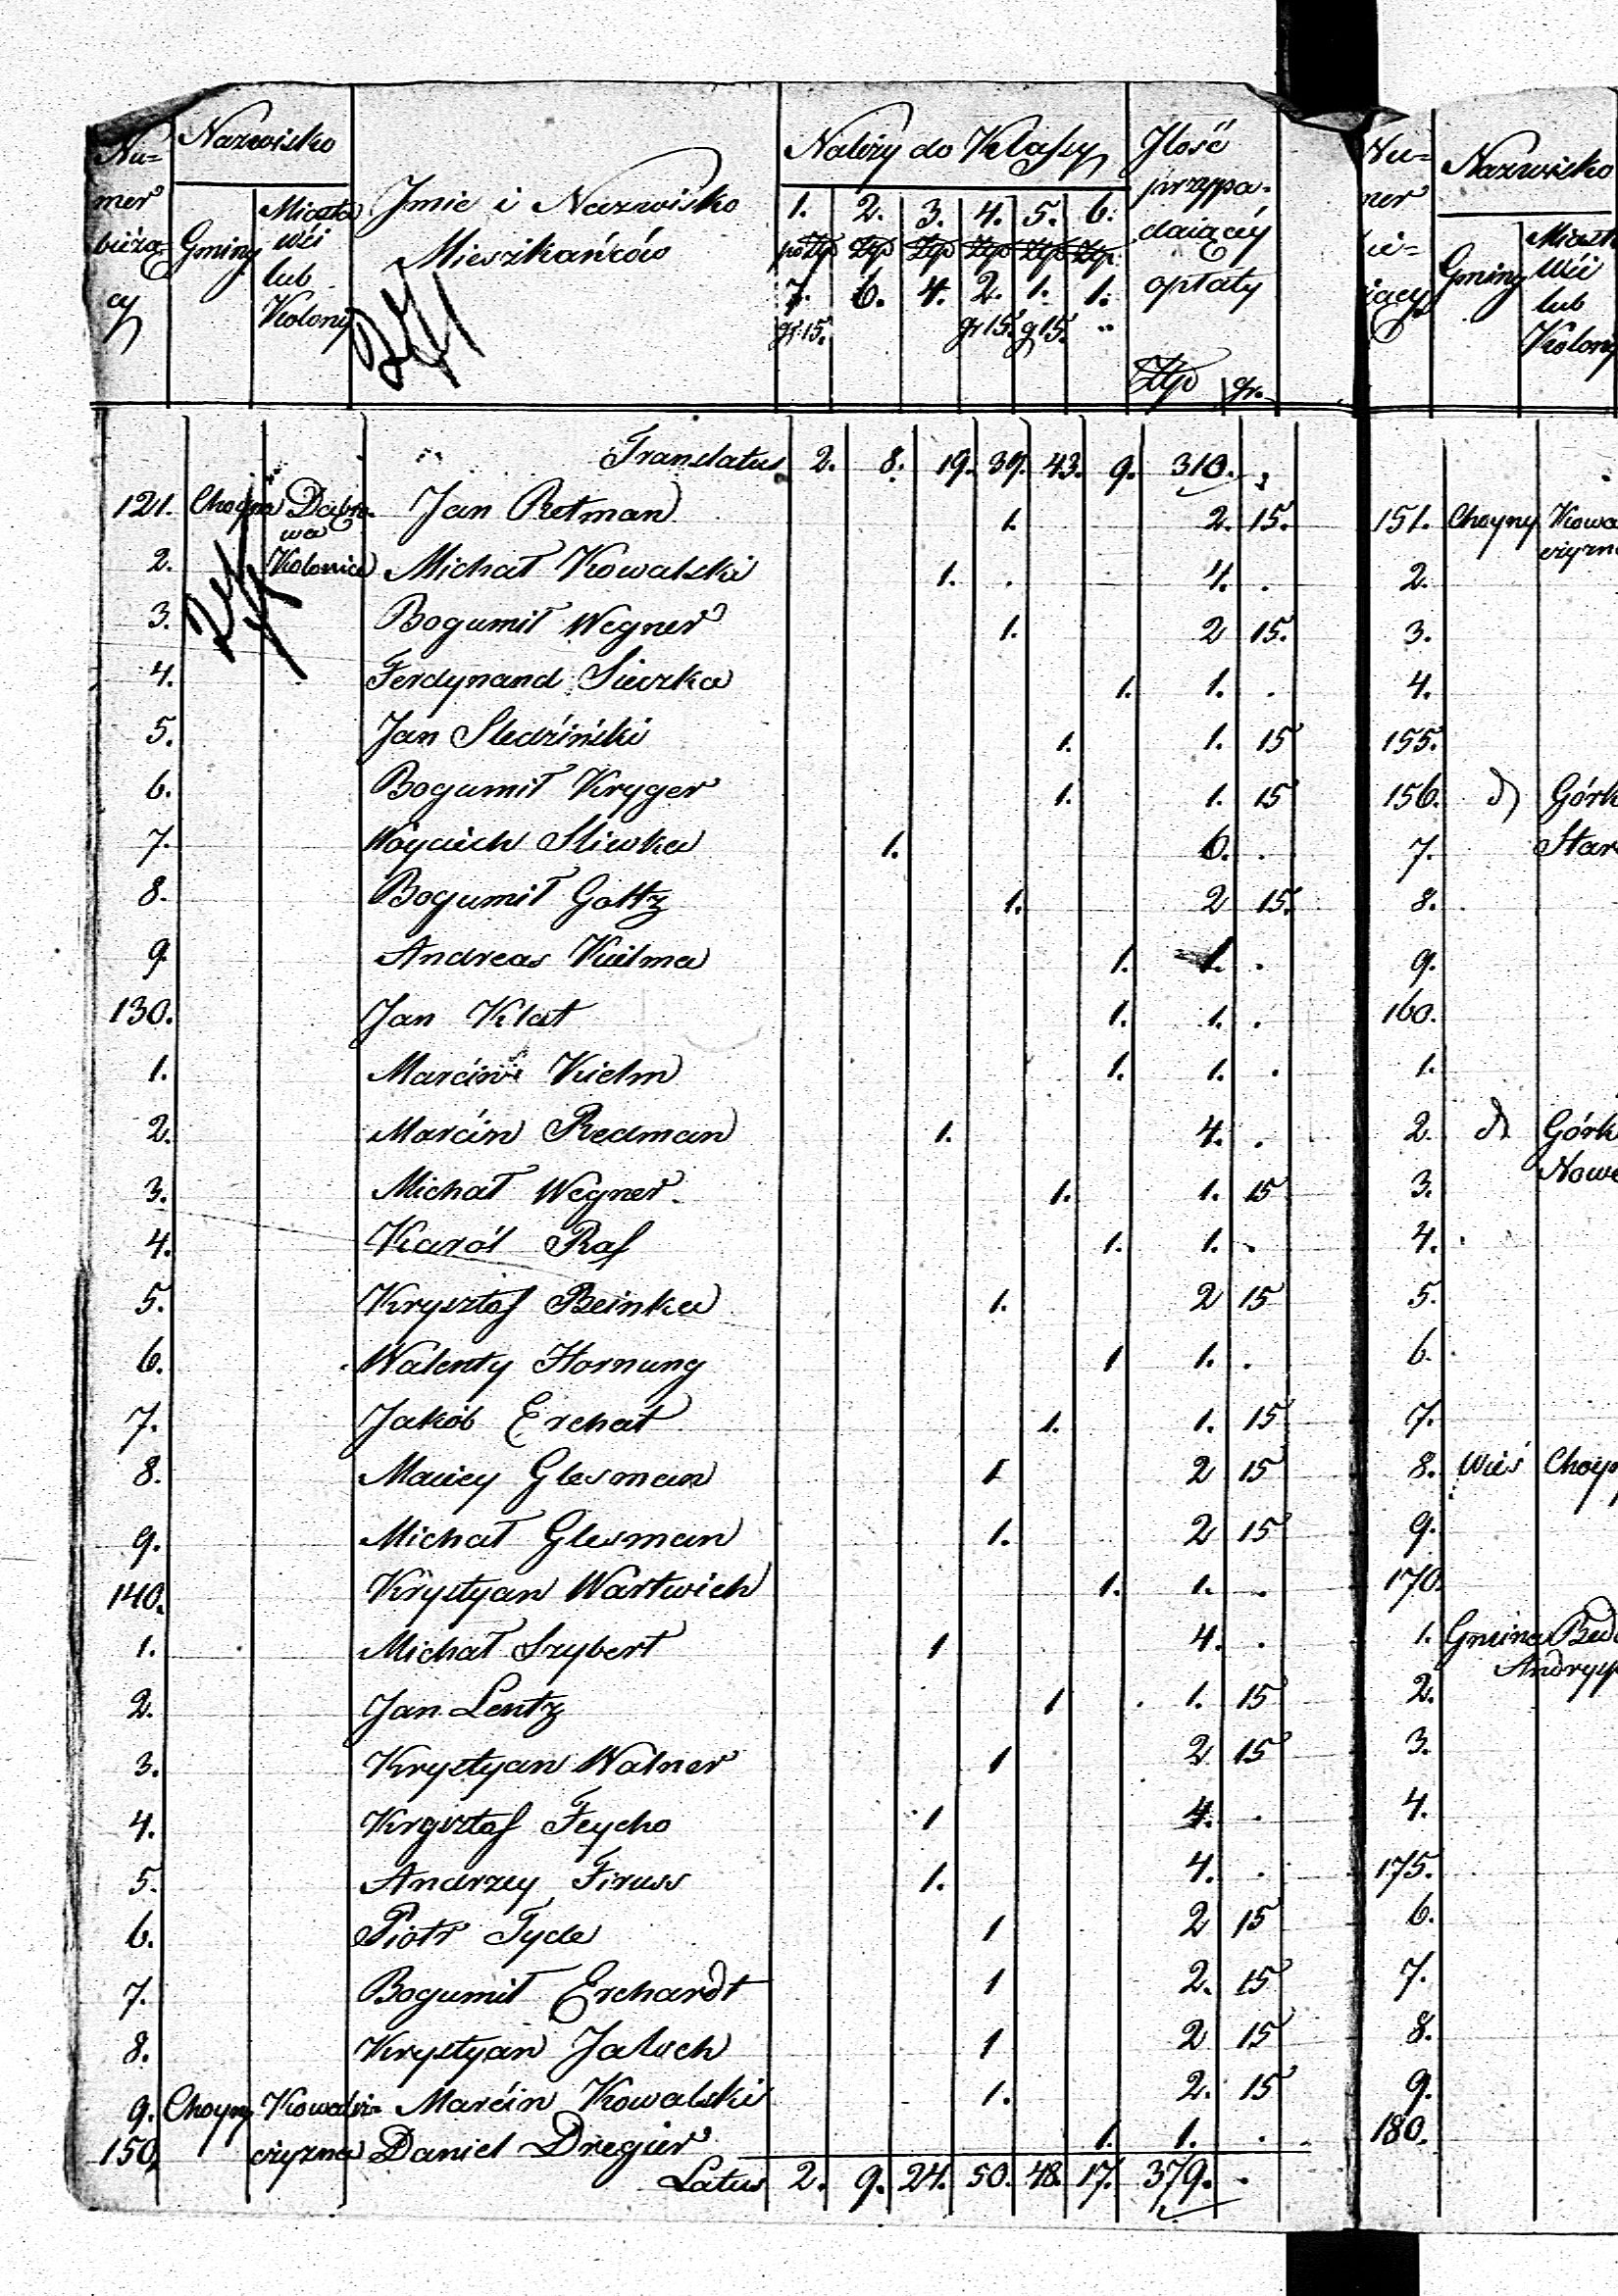 Numer bieżący | Nazwisko | Imie i Nazwisko Mieszkańców | Należy do Klassy | Ilość przypadaiącéy opłaty
Gminy | Miasta Wśi lub Kolony | 1. | 2. | 3. | 4. | 5. | 6. | Złp | gr.
po Złp | Złp | Złp | Złp | Złp | Złp
7. | 6. | 4. | 2. | 1. | 1.
gr 15. | gr 15. | g 15. | "
Translatus 2. 8. 19. 39. 43. 9. 310. .
121. Choyny Dąbrowa Jan Retman 1. 2. 15.
2. Kolonia Michał Kowalski 1. 4. .
3. Bogumił Wegner 1. 2 15.
4. Ferdynand Sieczka 1. 1. .
5. Jan Sledziński 1. 1. 15
6. Bogumił Kryger 1. 1. 15
7. Woyciech Sliwka 1. 6. .
8. Bogumił Goltz 1. 2 15.
9 Andreas Kielma 1. 1. .
130. Jan Klat 1. 1. .
1. Marcin Kielm 1. 1. .
2. Marcin Redman 1. 4. .
3. Michał Wegner 1. 1. 15
4. Karól Raf 1. 1. .
5. Krysztof Reinka 1. 2 15
6. Walenty Hornung 1 1. .
7. Jakób Erchat 1. 1. 15
8. Maciey Glesman 1 2 15
9. Michał Glesman 1. 2 15
140. Krystyan Wartwich 1. 1. .
1. Michał Szybert 1 4. .
2. Jan Lentz 1 1. 15
3. Krystyan Walner 1 2 15
4. Krysztof Feycho 1 4. .
5. Andrzey Firuss 1. 4. .
6. Piotr Tyde 1 2 15
7. Bogumił Erchardt 1 2. 15
8. Krystyan Jalsch 1 2 15
9. Choyny Kowal- Marcin Kowalski 1. 2. 15
150. czyzna Daniel Dregier 1. 1. .
Latus 2. 9. 24. 50. 48. 17. 379. .
Nazwisko
Gminy
lub
151. Choyny Kowa
czyzn
2.
3.
4.
155.
156. d Górk
7. Star
8.
9.
160.
1.
2. d Górk
3. Now
4.
5.
6.
7.
8. Wieś Choy
9.
170
1. Gmina
2.
3.
4.
175.
6.
7.
8.
9.
180.